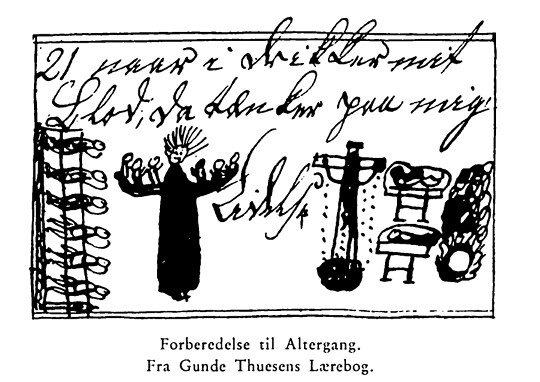 21 naar i drikker mit
Blod, da tænker paa mig!
Lidelse
Forberedelse til Altergang.
Fra Gunde Thuesens Lærebog.